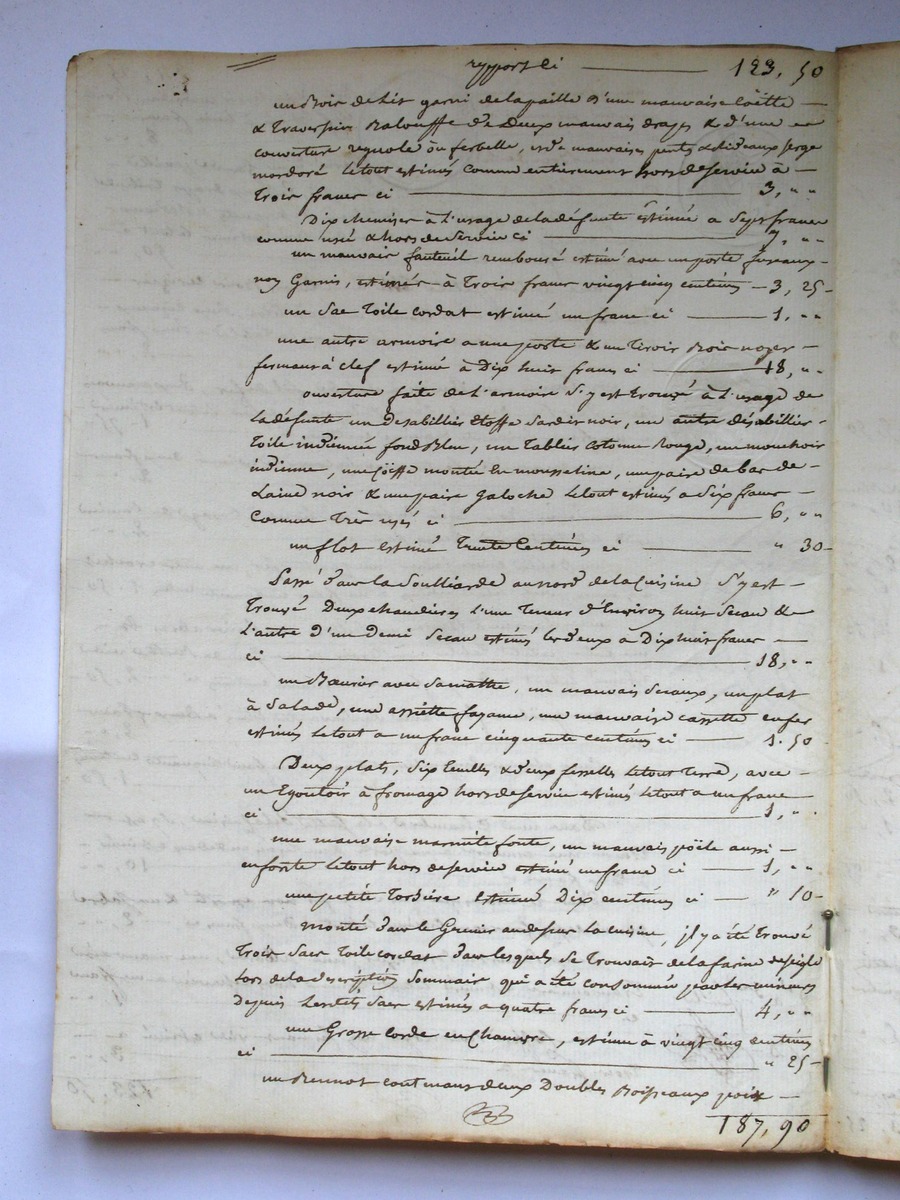 rapport ci — 123, 50
un Bois de Lit garni de la paille d'une mauvaise Coëtte —
& Traversin Balouffe & Deux mauvais draps & d'une
couverture ou , et de mauvaises pents & Rideaux serge
mordoré le tout estimés comme entierement hors de service à —
Trois francs ci — 3, " "
Dix chemises à l'usage de la défunte estimée a Sept francs
comme usé & hors de Service ci — 7, " "
un mauvais fauteuil remboursé estimé avec un porte fuseaux -
non Garnis, estimés à Trois francs vingt cinq centimes — 3, 25 -
un Sac Toile cordat estimé un franc ci — 1, " "
une autre armoire a une porte & un Tiroir Bois noyer —
fermans à clef estimé à Dix huit francs ci — 18, "
ouverture faite de l'armoire S'y est trouvé à l'usage de
la défunte un Desabillier Etoffe Sardis noir, un autre désabillier
Toile indiennée fond Bleu, un Tablier Cotonne Rouge, un mouchoir
indienne, une Coëffe montée en mousseline, une paire de bas de —
Laine noir & une paire Galoche le tout estimés a Six francs —
Comme Très usés ci — 6, " "
un flot estimé Trente Centimes ci — " 30 -
Passé dans la Soulliarde au nord de la Cuisine S'y est —
Trouvé Deux chaudieres l'une Teneur d'Environ huit Seaux &
L'autre D'un Demi Seceau estimés les deux à Dix huit francs —
ci — 18, " "
un avec , un mauvais Sceaux, un plat
à Salade, une assiette fayance, une mauvaise cassette en fer
estimés le tout a un franc cinquante centimes ci — 1. 50
Deux plats, Six & deux fesselles le tout Terre, avec —
un Egoutoir à fromage hors de Service estimés le tout a un franc
ci — 1, "
une mauvaise marmite fonte, un mauvais poële aussi —
en fonte le tout hors de service estimé un franc ci — 1, " "
une petite Tortière estimé Dix centimes ci — " 10 -
Monté dans le Grenier au dessus La cuisine, il y a été Trouvé
Trois Sacs Toile cordat dans lesquels Se Trouvait de la farine de seigle
Lors de la description Sommair qui a été consommée par les mineurs
Depuis Lesdits Sacs estimés a quatre francs ci — 4, " "
une Grosse Corde en Chanvre, estimée à vingt cinq centimes
ci — " 25 -
un contenans deux Doubles Boisseaux poix —
187, 90